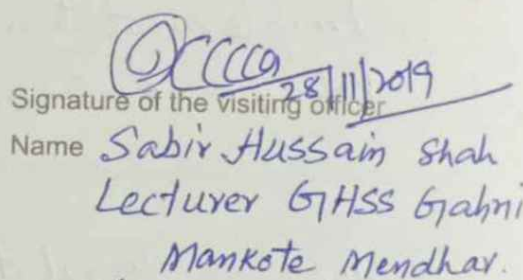 28/11/2019
Signature of the visiting officer
Name Sabir Hussain Shah
Lecturer GHSS Gahni
Mankote Mendhar.